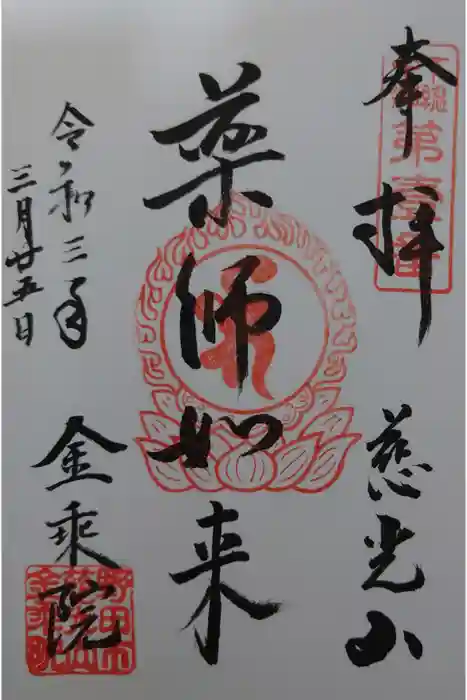 奉拝
慈光山
薬師如来
令和三年
三月廿五日
金乗院
第壹番